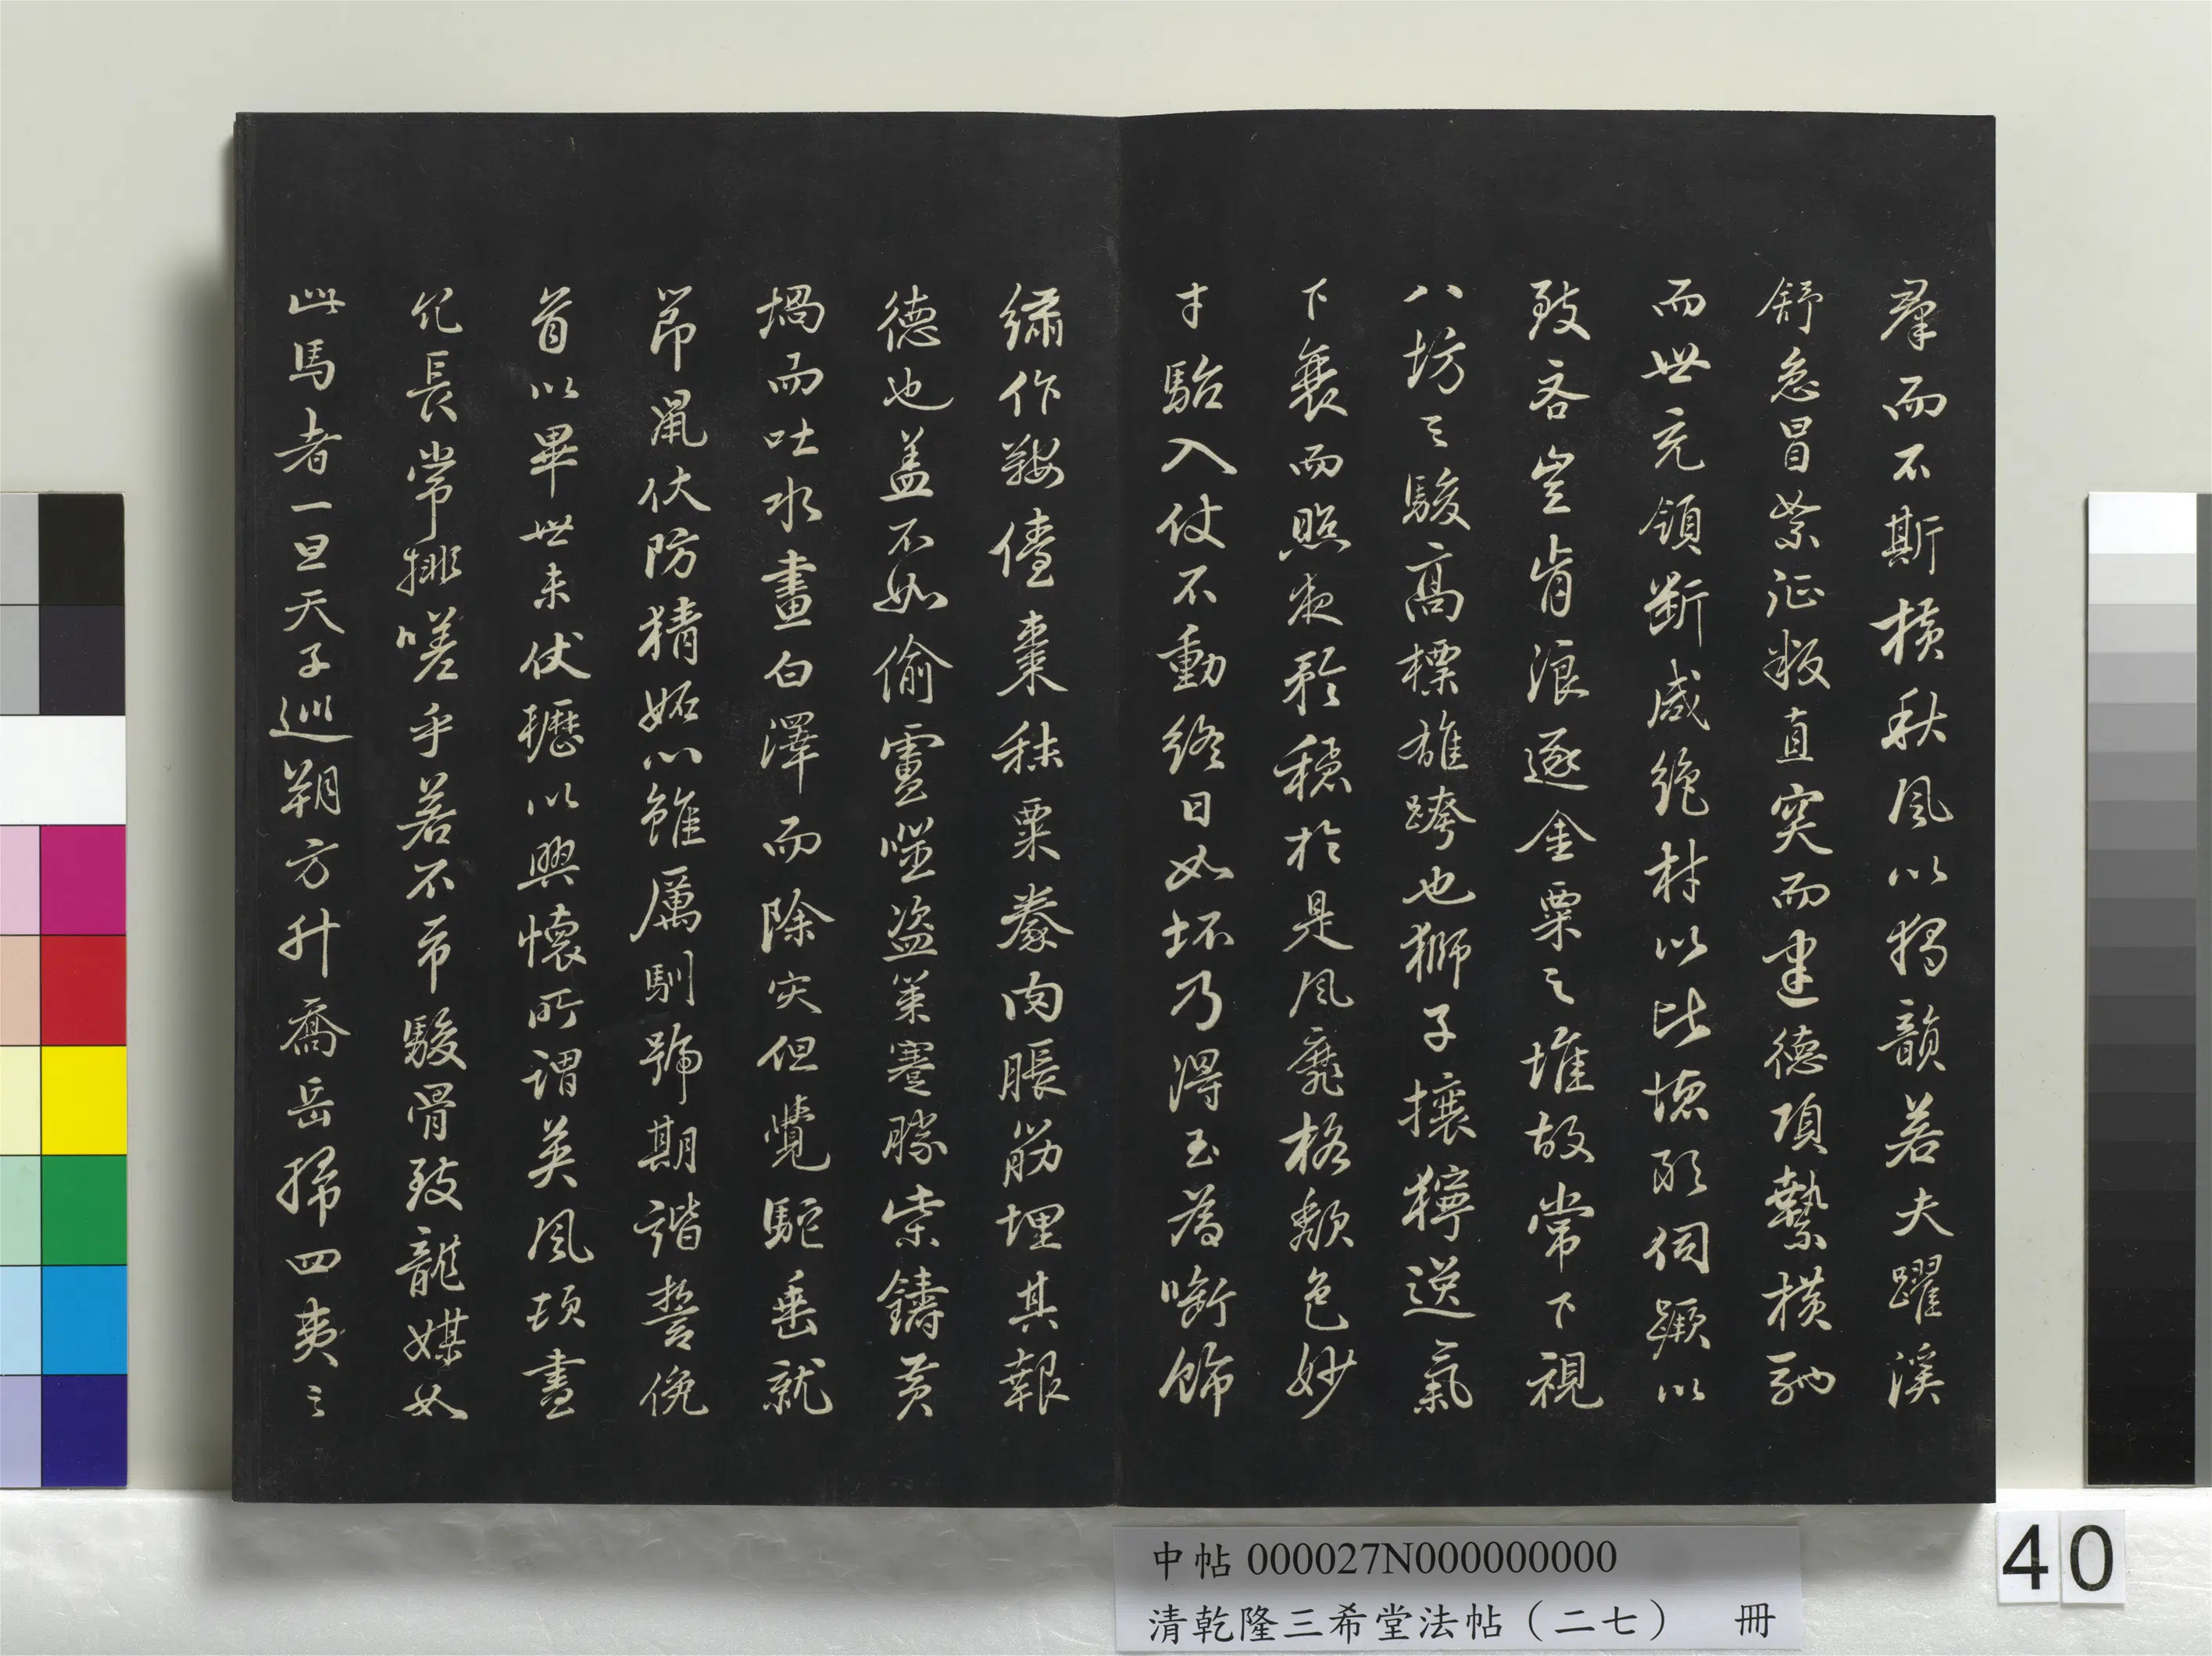 羣而不斯橫秋風以獨韻若夫躍溪
舒急冒絮征叛直突而建德項縶橫馳
而世充領斷咸絕材以比德敢伺蹶以
致吝豈肯浪逐金粟之堆故常下視
八坊之駿高標雄跨也獅子攘獰逸氣
下衰而照夜矜穩於是風靡格頹色妙
才駘入仗不動終日如坯乃得玉為銜飾
繡作鞍儓棗秣粟豢肉脹筋埋其報
德也蓋不如偷盧噬盜策蹇勝柴鑄黃
堝而吐水畫白澤而除災但覺駝垂就
節鼠伏防猜妬心雖厲馴號期諧誓俛
首以畢世未伏櫪以興懷所謂英風頓盡
冗長常排嗟乎若不市駿骨致龍媒如
此馬者一旦天子巡朔方升喬岳掃四夷之
中帖 000027N000000000
清乾隆三希堂法帖（二七） 冊
40